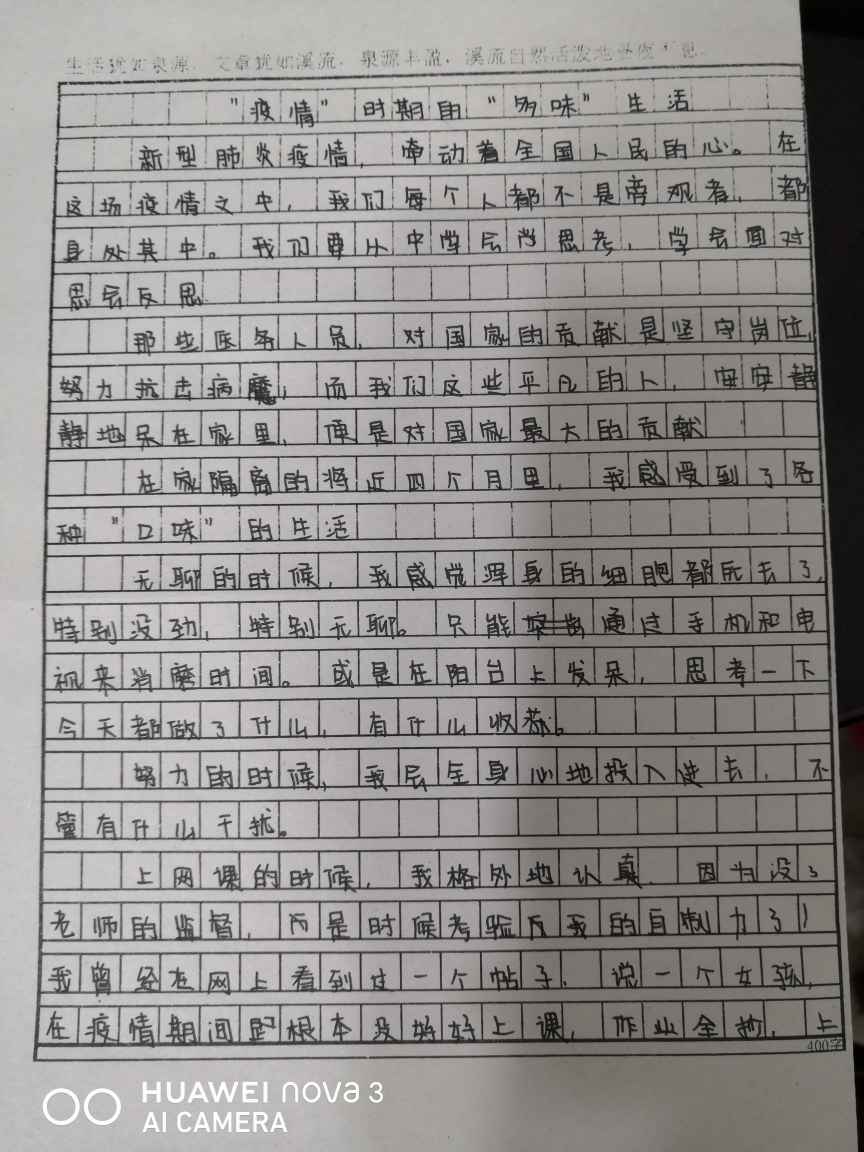 生活犹如泉源，文章犹如溪流，泉源丰盈，溪流自然活泼地昼夜不息。
“疫情”时期的“多味”生活
新型肺炎疫情，牵动着全国人民的心。在
这场疫情之中，我们每个人都不是旁观者，都
身处其中。我们要从中学会尚思考，学会面对
思会反思
那些医务人员，对国家的贡献是坚守岗位，
努力抗击病魔，而我们这些平凡的人，安安静
静地呆在家里，便是对国家最大的贡献
在家隔离的将近四个月里，我感受到了各
种“口味”的生活
无聊的时候，我感觉浑身的细胞都死去了，
特别没劲，特别无聊。只能通过手机和电
视来消磨时间。或是在阳台上发呆，思考一下
今天都做了什么，有什么收获。
努力的时候，我会全身心地投入进去，不
管有什么干扰。
上网课的时候，我格外地认真，因为没了
老师的监督，是时候考验我的自制力了！
我曾经在网上看到过一个帖子，说一个女孩，
在疫情期间根本没好好上课，作业全抄，上
400字
HUAWEI nova 3
AI CAMERA